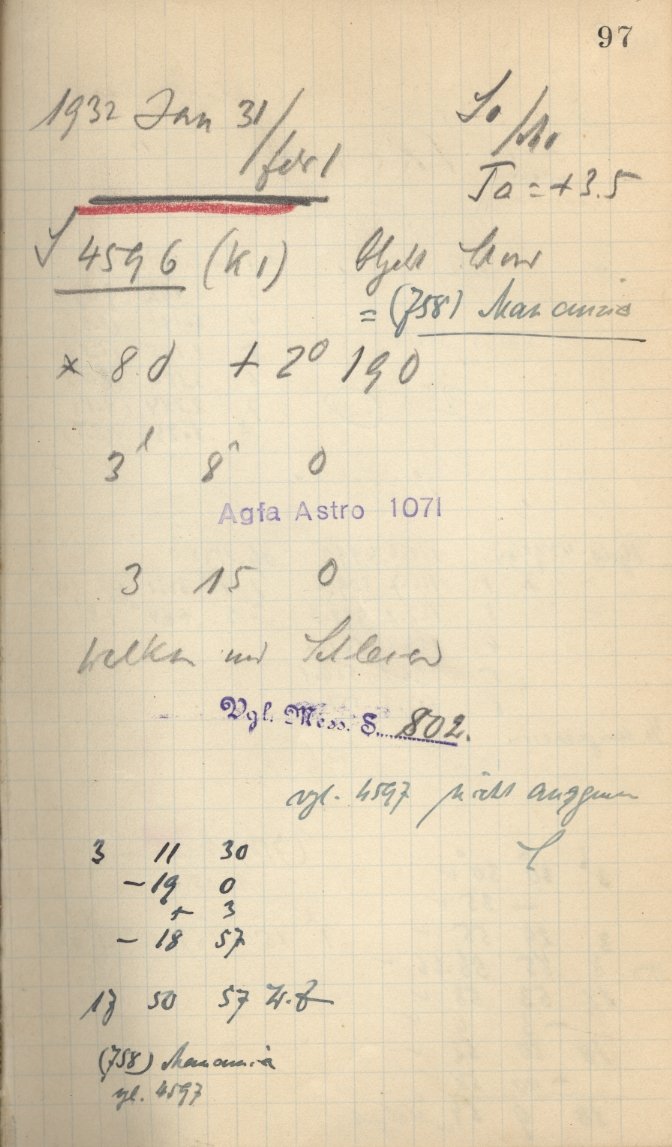 97
1932 Jan 31/
Febr 1
Ta = +3.5
4596 (K1) Objekt
= (758) Mancunia
× 8 d + 2° 190
3 8 0
Agfa Astro 1071
3 15 0
Wolken und Schleier
Vgl. Mess. S. 802.
vgl. 4597 nicht
3 11 30
- 19 0
+ 3
- 18 57
17 50 57
(758) Mancunia
vgl. 4597